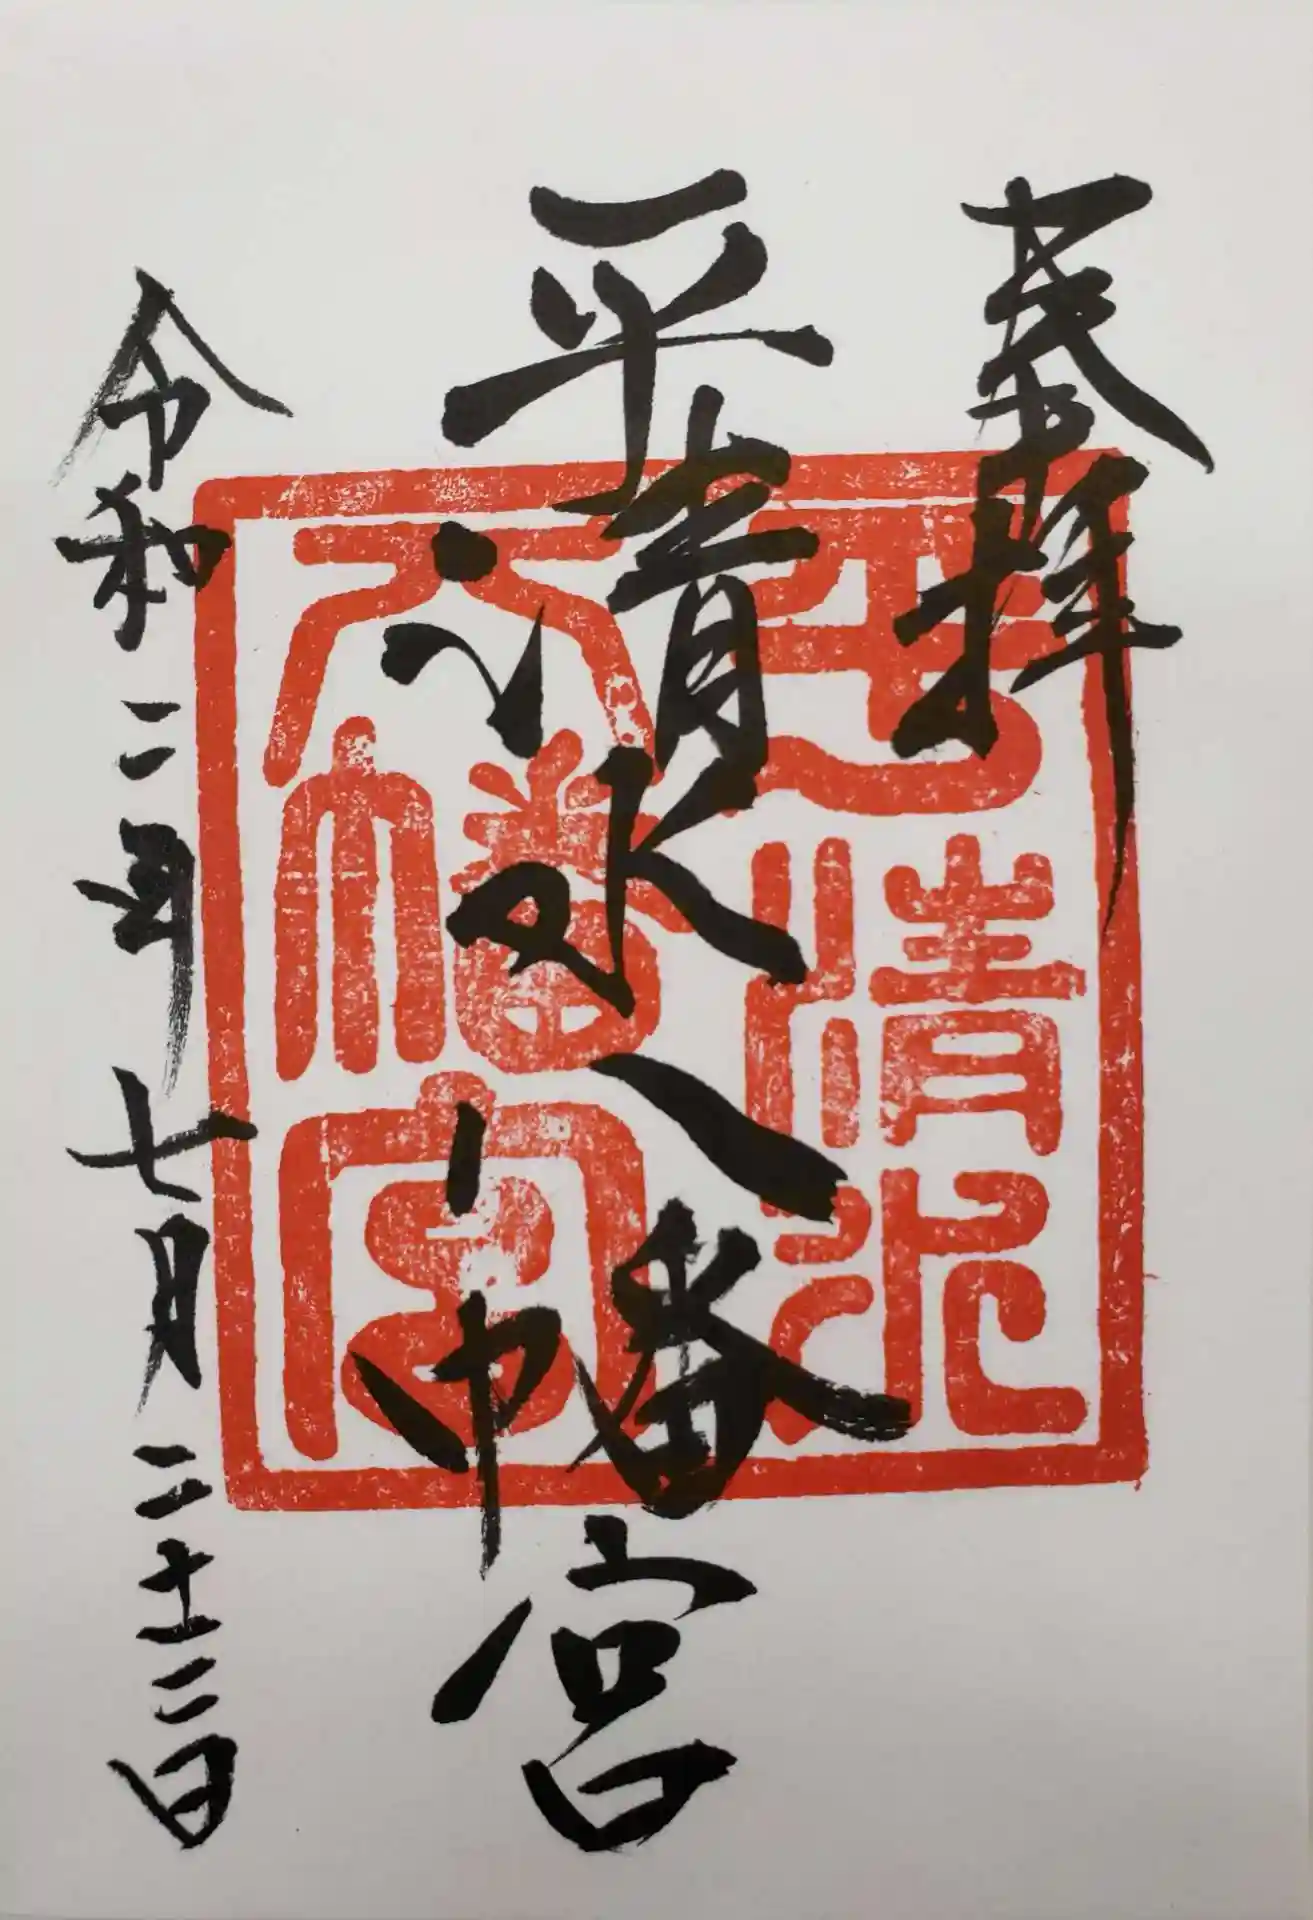 奉拝
平清水八幡宮
令和二年七月二十三日
平清水
八幡宮